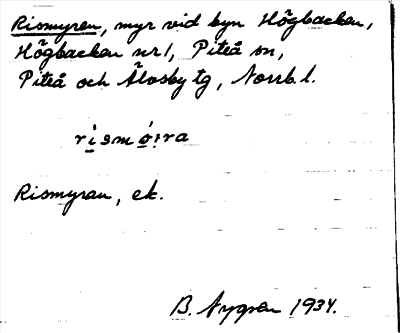 Rismyren, myr vid byn Högbacken,
Högbacken nr 1, Piteå sn,
Piteå och Älvsby tg, Norrb. l.
rismó:ra
Rismyran, ek.
B. Nygren 1934.